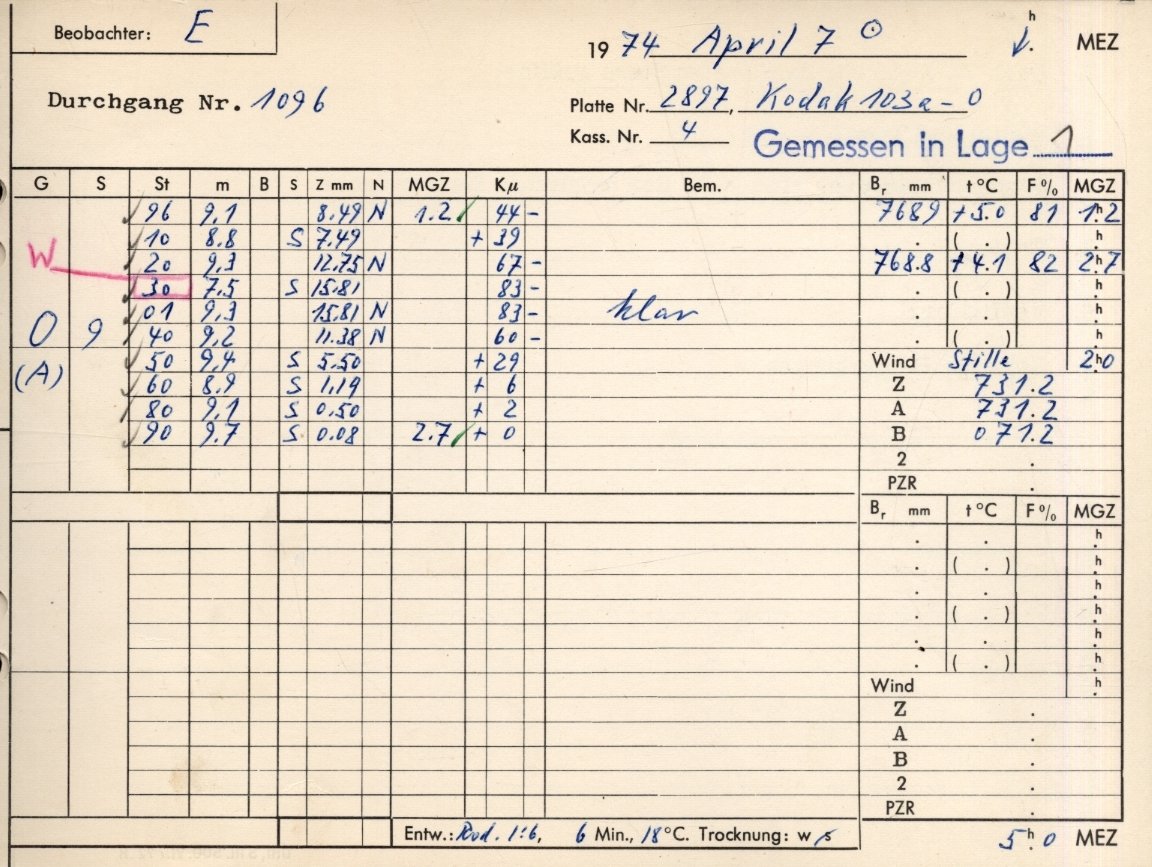 Beobachter: E
19 74 April 7 ☉ h . MEZ
Durchgang Nr. 1096
Platte Nr. 2897, Kodak 103a-O
Kass. Nr. 4
Gemessen in Lage 1
G S St m B S Z mm N MGZ Kμ Bem. Br mm t °C F % MGZ
✓ 96 9.1 8.49 N 1.2 ✓ 44 - 768.9 +5.0 81 1h.2
✓ 10 8.8 S 7.49 + 39 . ( . ) h.
W ✓ 20 9.3 12.75 N 67 - 768.8 +4.1 82 2h.7
✓ 30 7.5 S 15.81 83 - . ( . ) h.
✓ 01 9.3 15.81 N 83 - klar . . h.
O 9 ✓ 40 9.2 11.38 N 60 - . ( . ) h.
(A) ✓ 50 9.4 S 5.50 + 29 Wind Stille 2h.0
✓ 60 8.9 S 1.19 + 6 Z 731.2
✓ 80 9.1 S 0.50 + 2 A 731.2
✓ 90 9.7 S 0.08 2.7 ✓ + 0 B 071.2
2 .
PZR .
Br mm t °C F % MGZ
. . h.
. ( . ) h.
. . h.
. ( . ) h.
. . h.
. ( . ) h.
Wind h.
Z .
A .
B .
2 .
PZR .
Entw.: Rod. 1:6, 6 Min., 18 °C. Trocknung: w 5h.0 MEZ